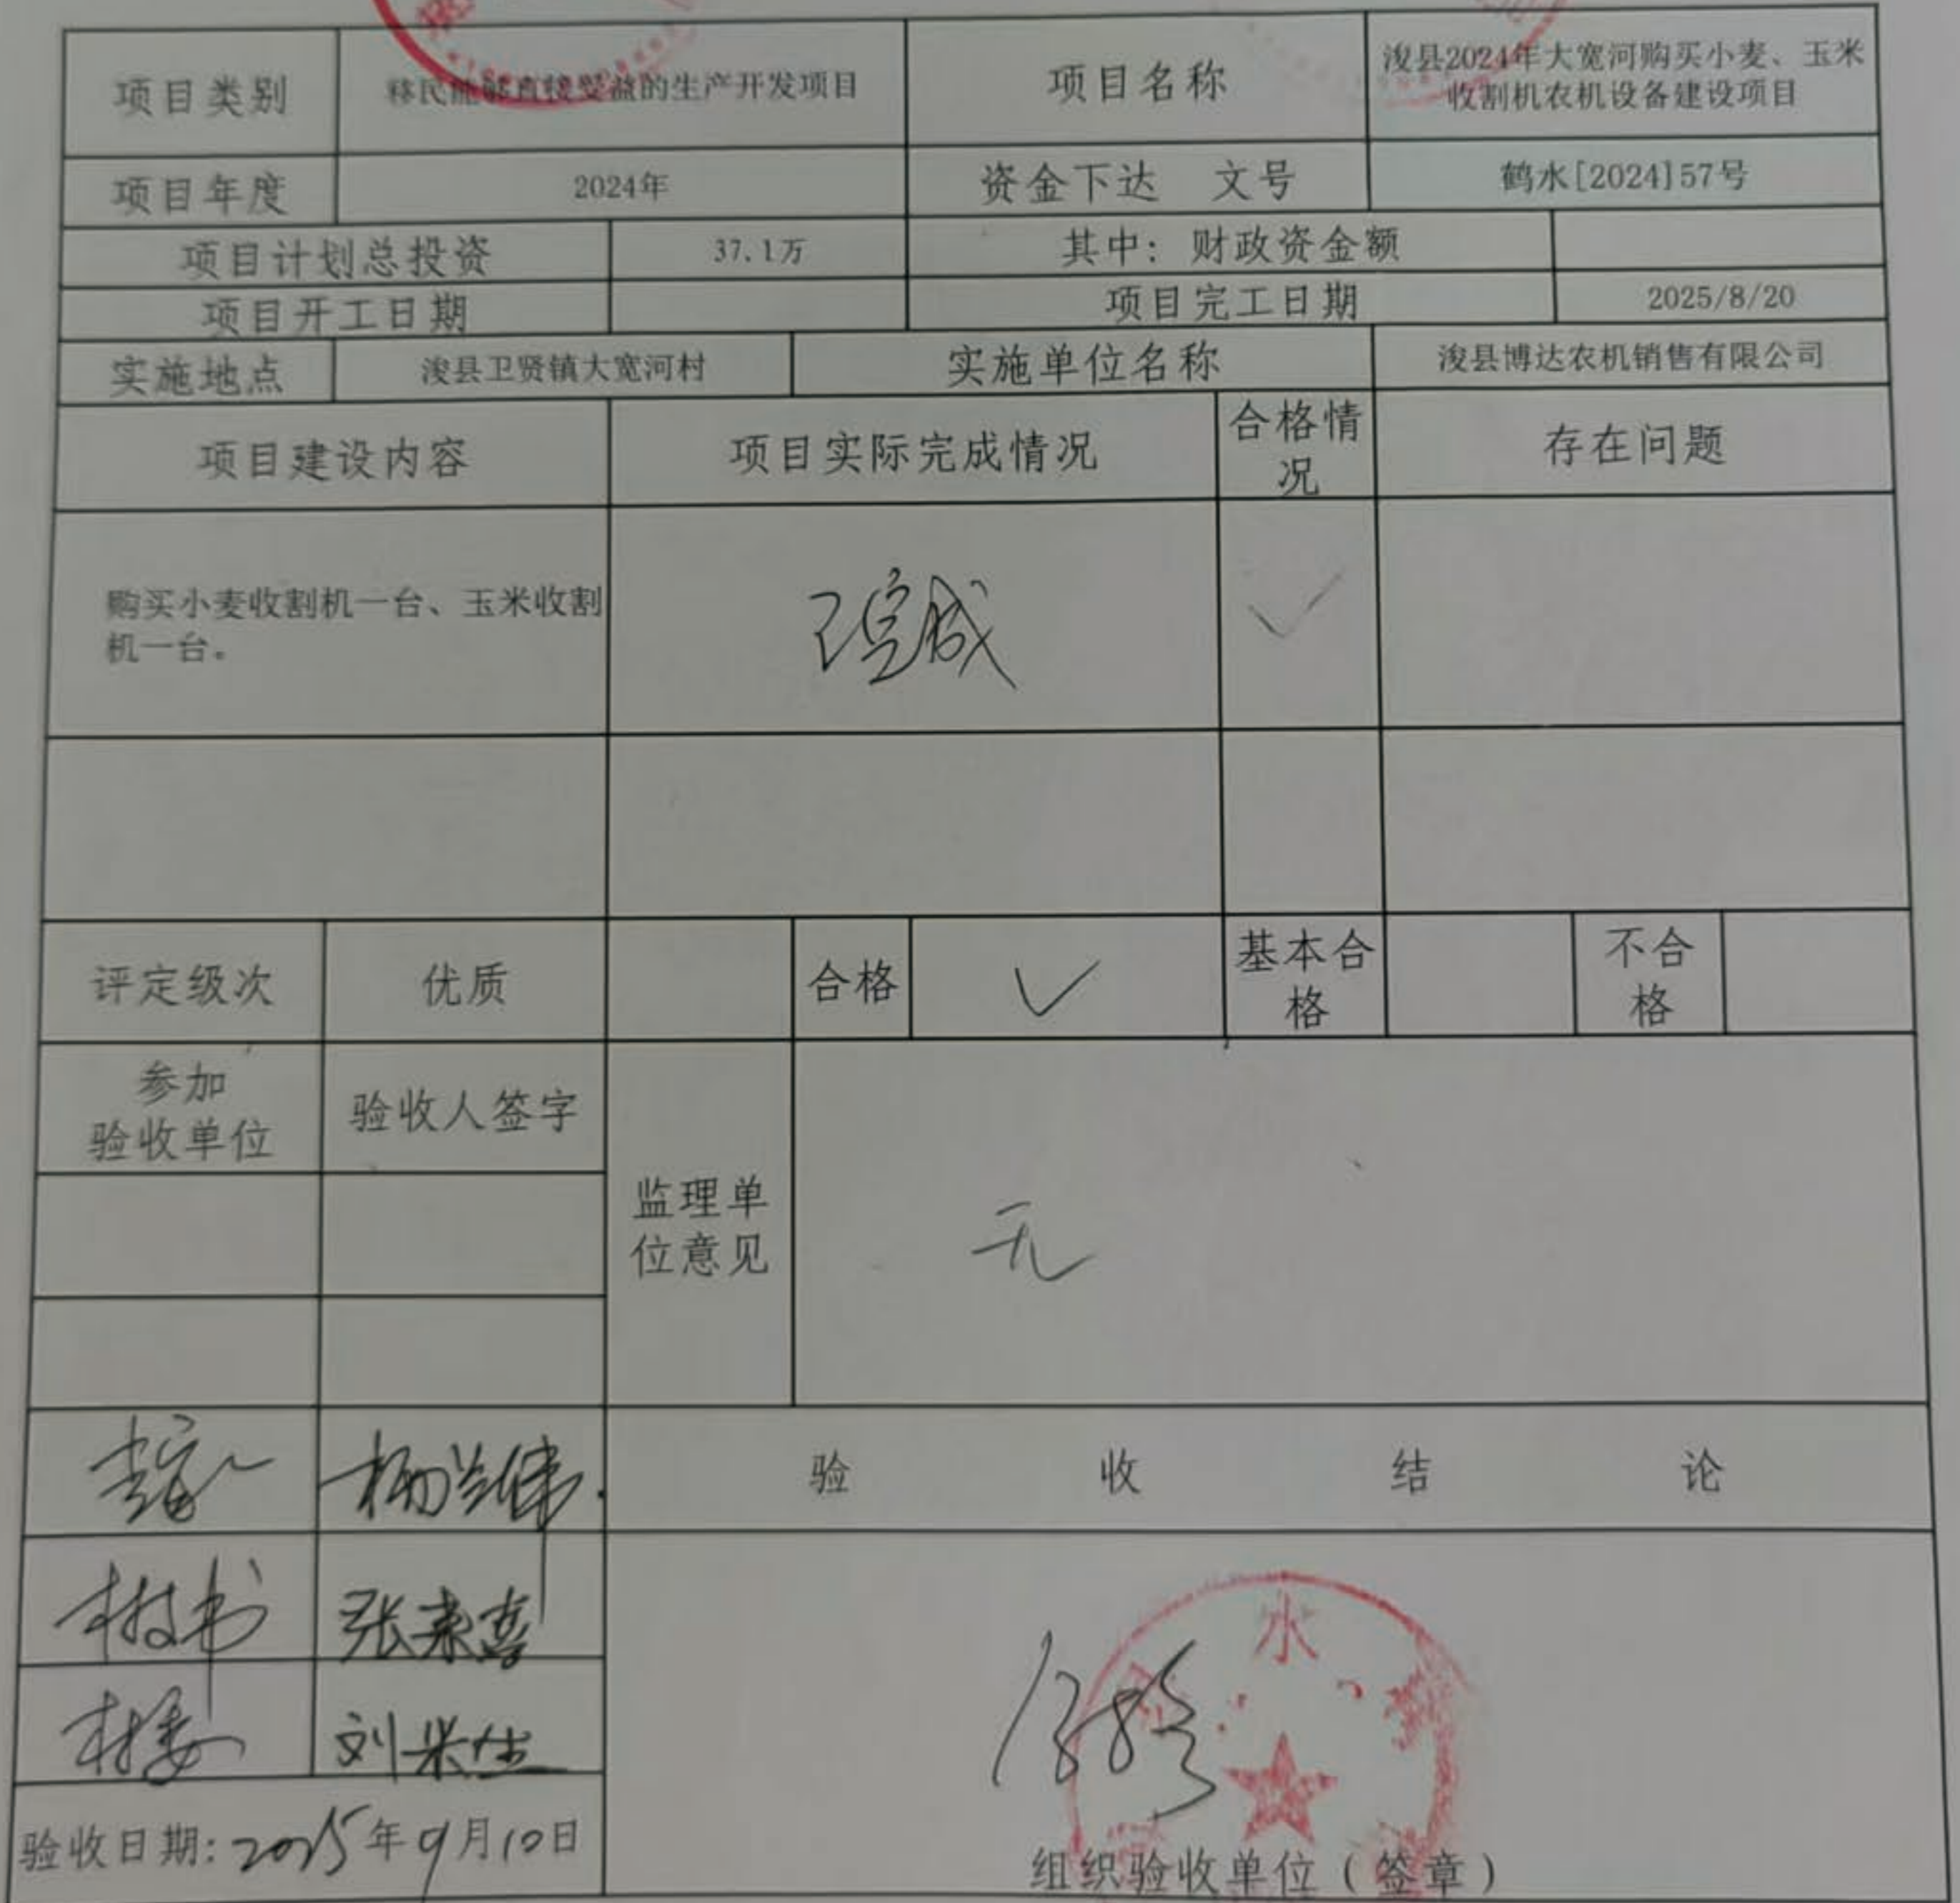 项目类别
移民能够直接受益的生产开发项目
项目名称
浚县2024年大宽河购买小麦、玉米
收割机农机设备建设项目
项目年度
2024年
资金下达 文号
鹤水[2024]57号
项目计划总投资
37.1万
其中：财政资金额
项目开工日期
项目完工日期
2025/8/20
实施地点
浚县卫贤镇大宽河村
实施单位名称
浚县博达农机销售有限公司
项目建设内容
项目实际完成情况
合格情
况
存在问题
购买小麦收割机一台、玉米收割
机一台。
已完成
✓
评定级次
优质
合格
✓
基本合
格
不合
格
参加
验收单位
验收人签字
监理单
位意见
无
验 收 结 论
村支书
张来喜
村委
验收日期:2025年9月10日
合格
水
组织验收单位（签章）